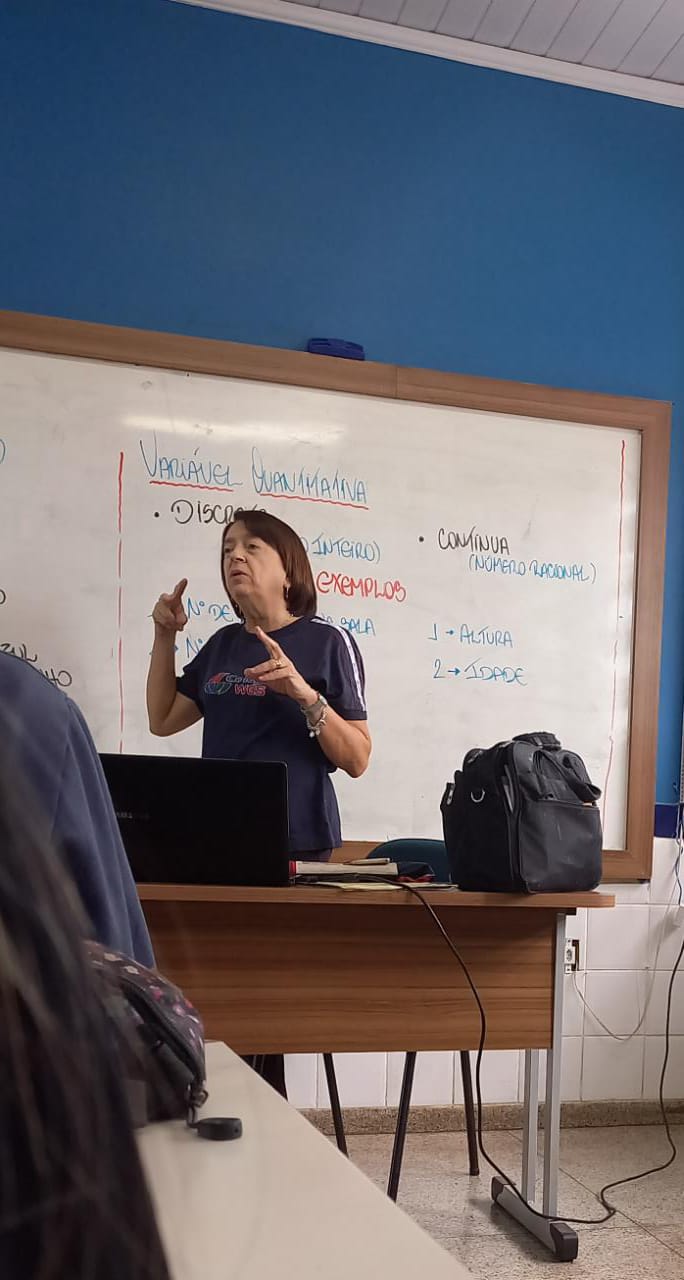 VARIÁVEL QUANTITATIVA
• DISCRE
O INTEIRO)
EXEMPLOS
Nº DE
SALA
Nº
• CONTÍNUA
(NÚMERO RACIONAL)
1 → ALTURA
2 → IDADE
WGS